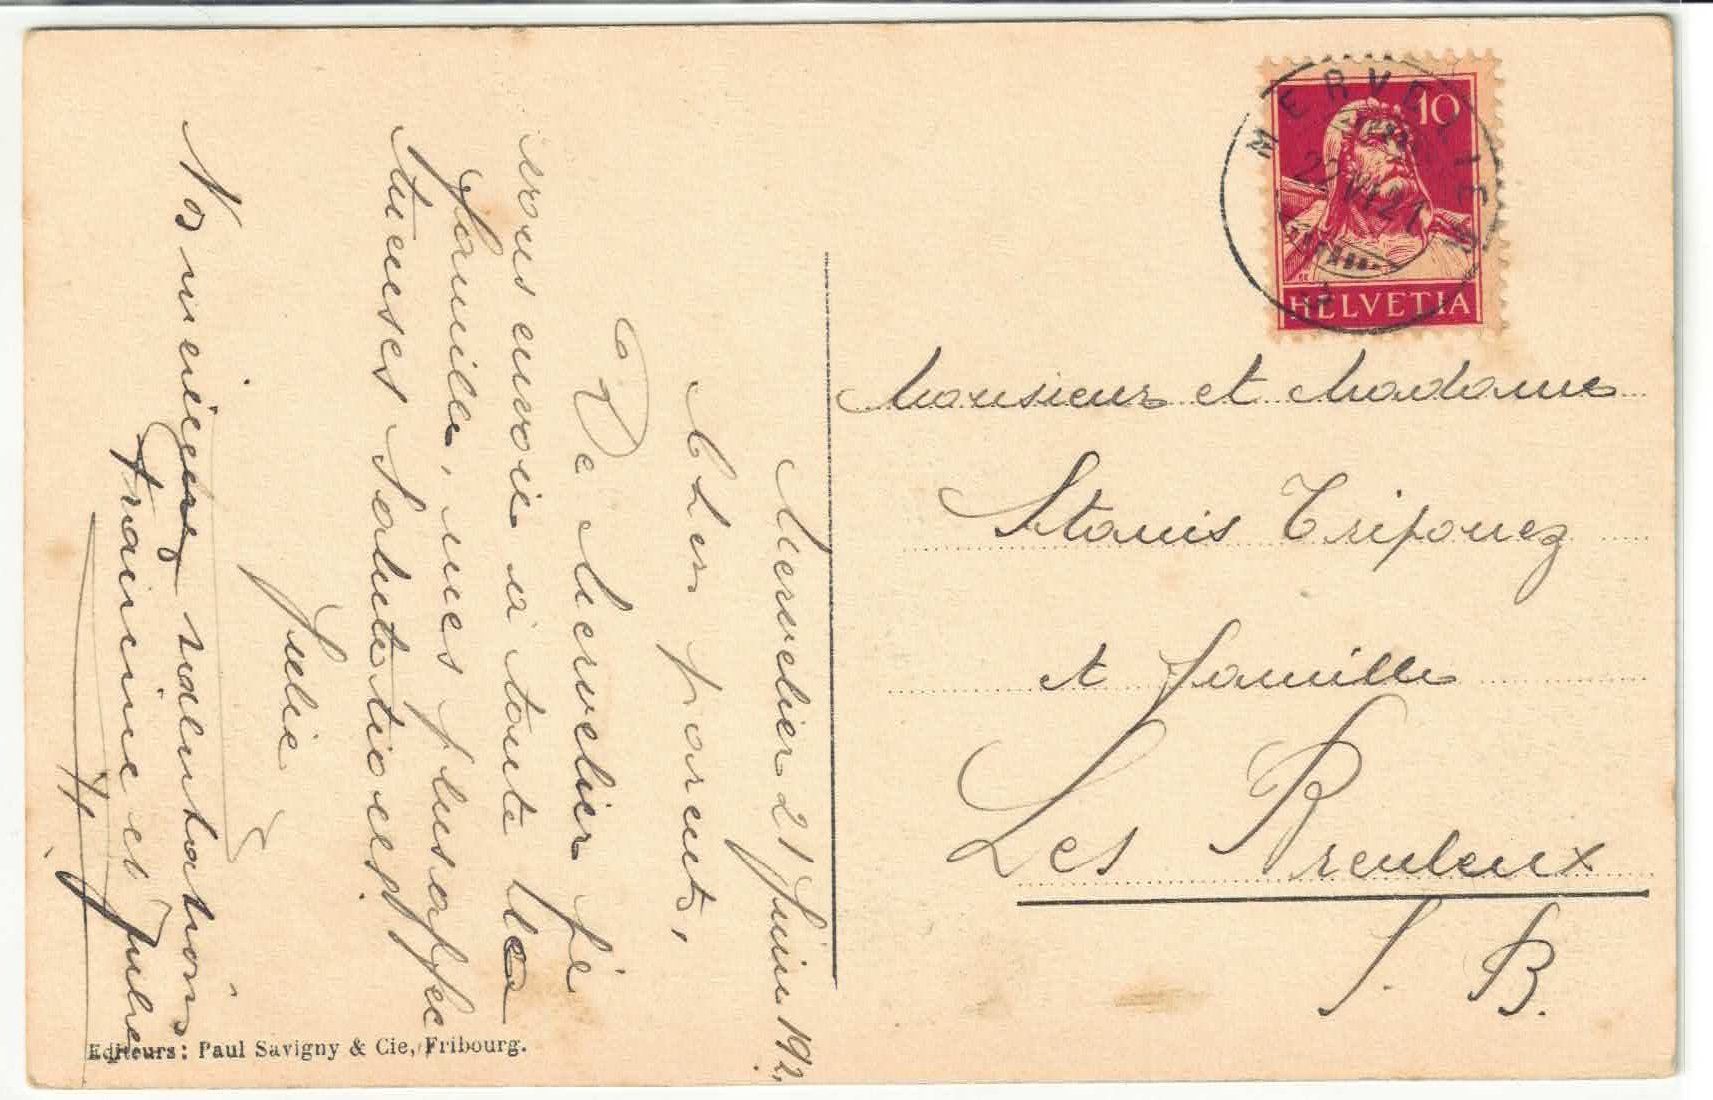 Mervelier 21 Juin 192
Chers parents,
De Mervelier je
vous envoie à toute la
famille, mes plus affec
tueuses Salutations
Julie
Nos meilleures salutations
et Julie
Editeurs: Paul Savigny & Cie, Fribourg.
MERVELIER
22 VI 21
10
HELVETIA
Monsieur et Madame
Stanis Triponez
et famille
Les Breuleux
J. B.